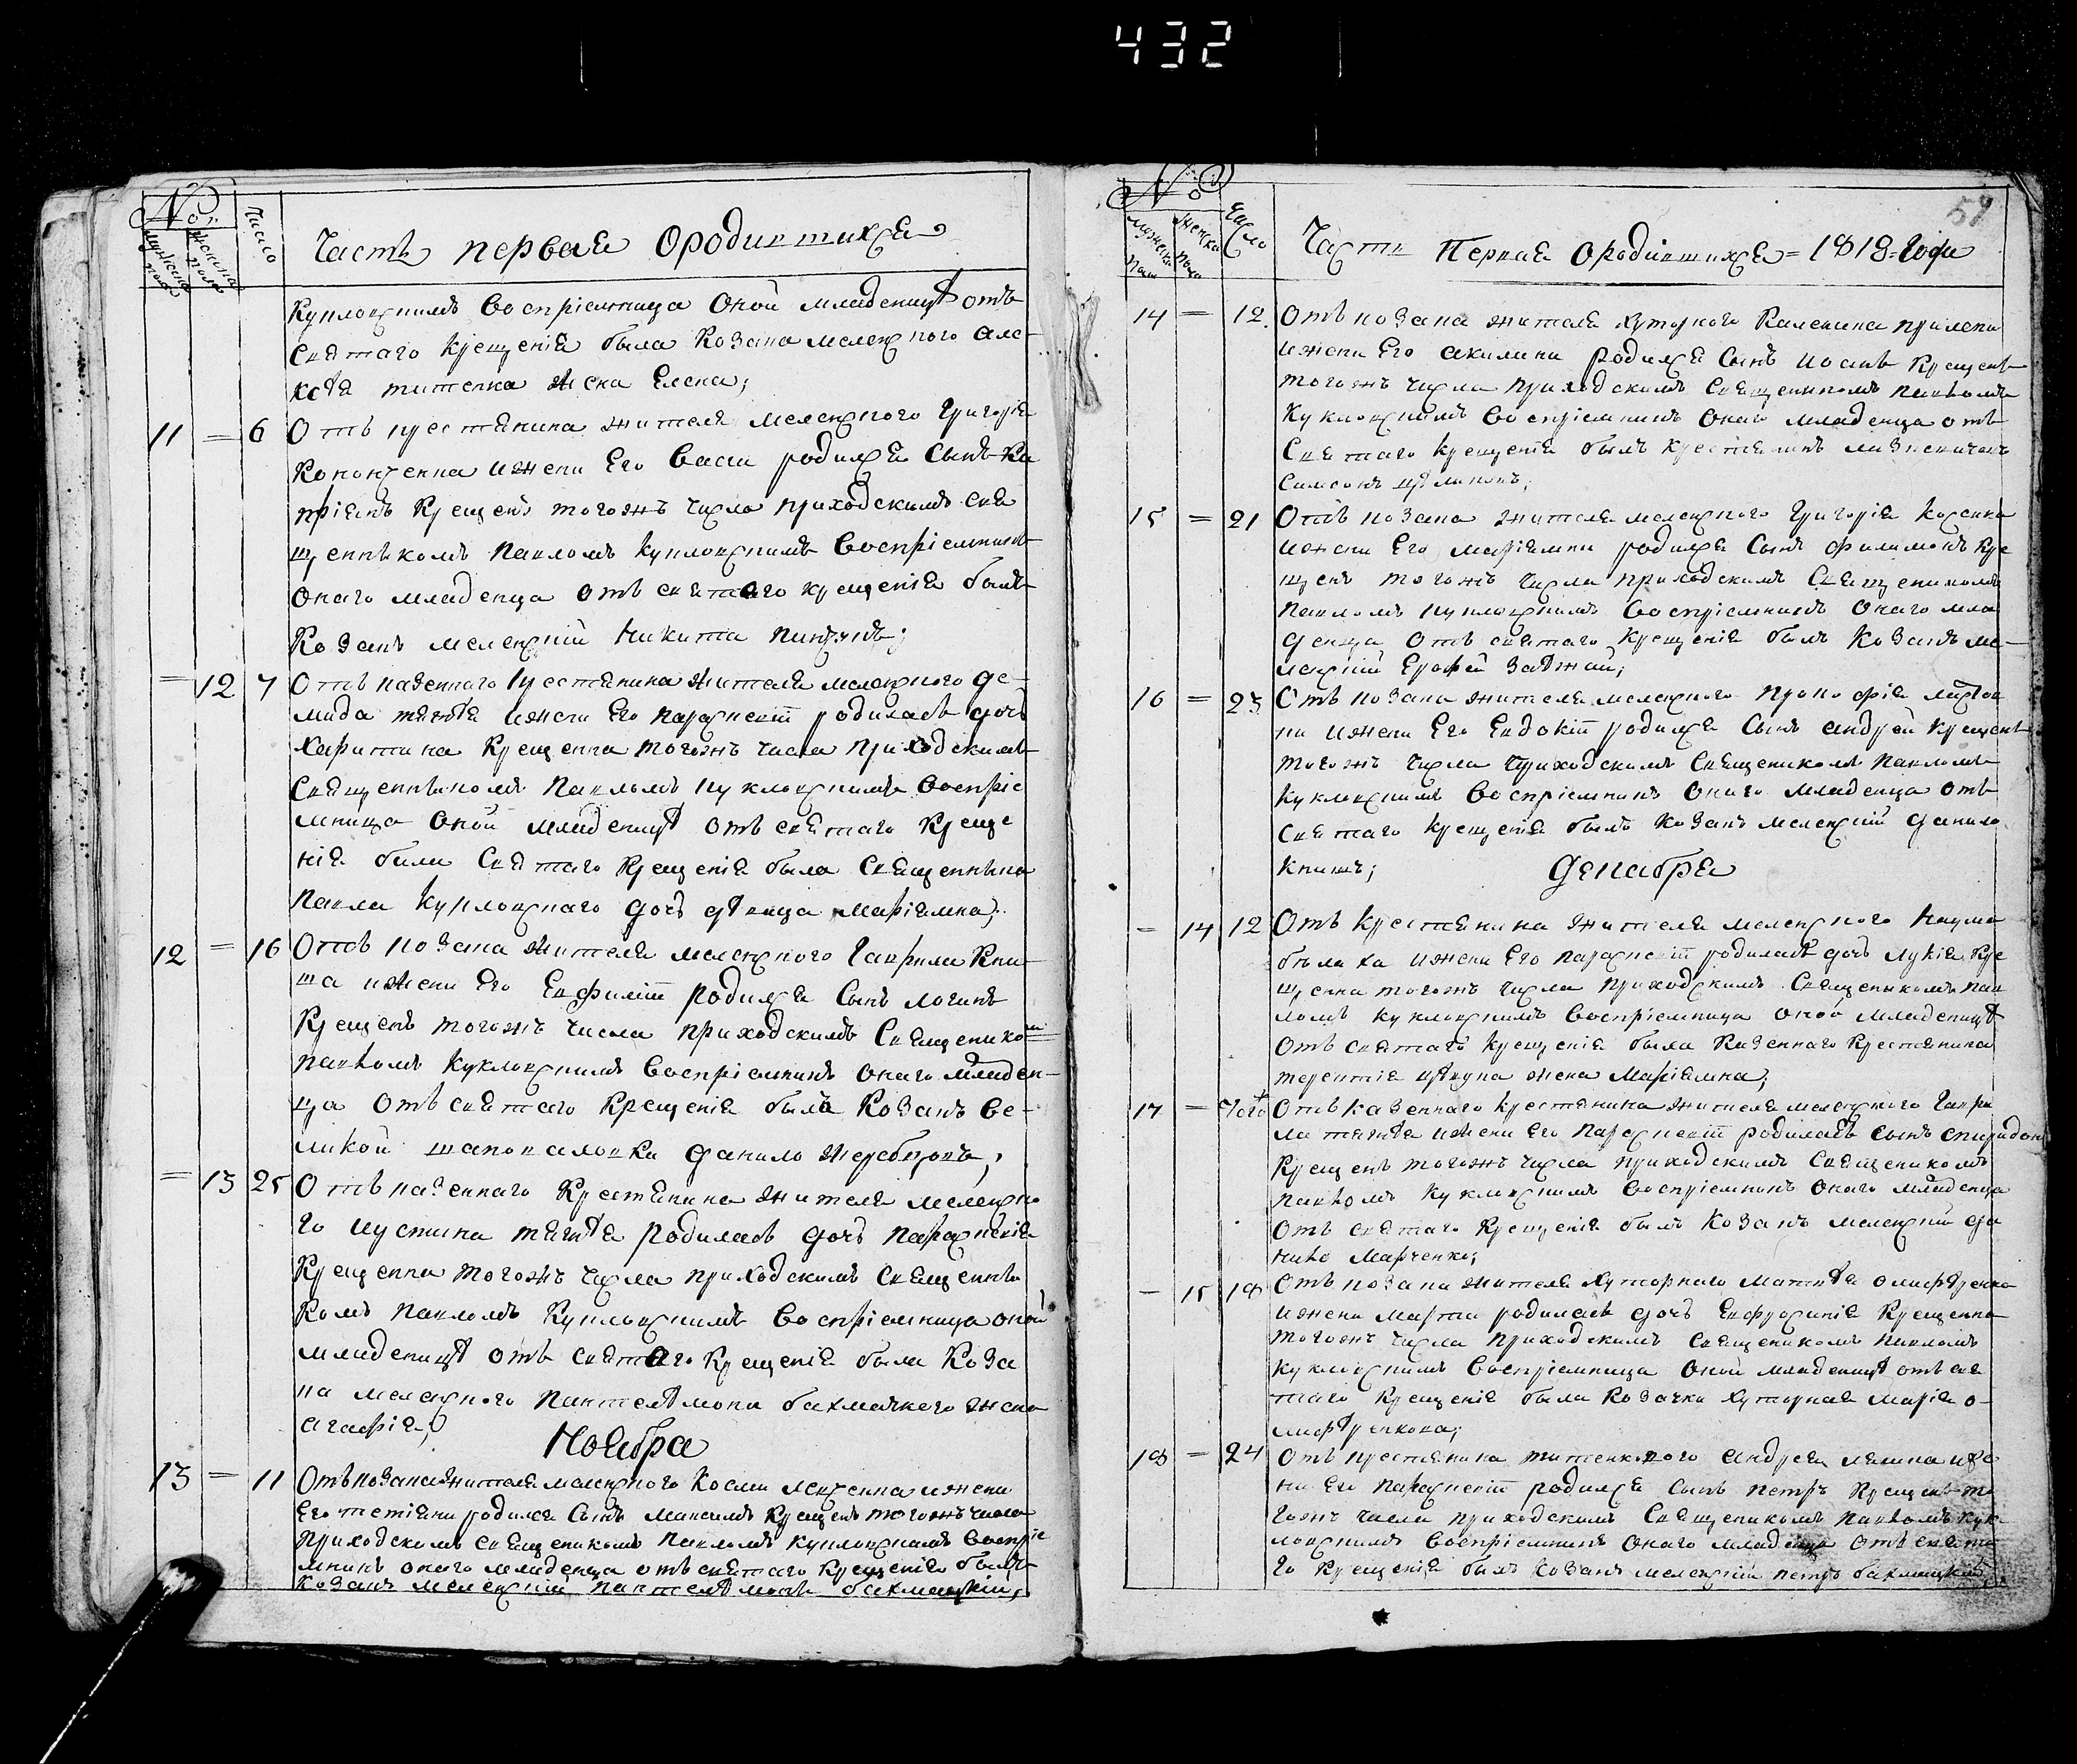 432
№
мужеска пола
женска пола
Число
Часть первая О родившихся
Кукловскимъ Воспріемница Оной младеницѣ отъ
Святаго Крещенія была Козака мелевского але-
ксѣя титенка жена Елена;
11 = 6 Отъ крестянина жителя мелевского Григорія
жени Его Васси родился Сынъ Ки
пріянъ Крещенъ тогожъ числа приходскимъ свя
щенникомъ Павломъ Кукловскимъ Воспріемникъ
Онаго младенца Отъ святаго крещенія былъ
Козакъ мелевский Никита
= 12 7 Отъ казенного крестянина жителя мелевского Де-
мида тягнѣя ижени Его параскевіи родилась дочь
Харитина Крещенна тогожъ числа приходскимъ
Священникомъ Павломъ куклоскимъ Воспріе
мница Оной младеницѣ отъ святаго Креще
нія были Святаго Крещенія была Священника
Павла Куклоскаго дочь дѣвица маріямна;
12 = 16 Отъ Козака жителя мелевского Гаврила Кни
ша ижени Его Евфиміи родился Сынъ логинъ
Крещенъ тогожъ числа приходскимъ Священиком
павломъ Куклоскимъ Воспріемникъ Онаго младен-
ца Отъ святаго Крещенія былъ Козакъ Ве-
ликой шаповаловки Данило жеребцовъ;
= 13 25 Отъ казенного Крестянина жителя мелевско
го Иустина тягнѣя родилась дочь параскевія
Крещенна тогожъ числа приходскимъ Священни
комъ Павломъ Куклоскимъ Воспріемница оной
младеницѣ отъ святаго Крещенія была Коза
ка мелевского Пантелѣмона бахмацкого жена
агафія;
Ноября
13 = 11 Отъ козака жителя мелевского Косми ижени
Его тетіяни родился Сынъ Максимъ Крещенъ тогожъ числа
приходскимъ священикомъ Павломъ Куклоскимъ Воспріе
мникъ онаго младенца отъ святаго Крещенія былъ
Козакъ мелевский пантелѣмонъ бахмацкій;
№
мужеска пола
женска пола
Число
59
Часть Первая О родившихся = 1818 Года
14 = 12. Отъ козака жителя хуторного
ижени Его акилини родился Сынъ иоанъ Крещенъ
тогожъ числа приходскимъ Священникомъ павломъ
Куклоскимъ Воспріемникъ Онаго младенца отъ
Святаго крещенія былъ крестянинъ
Самсонъ
15 = 21 Отъ козака жителя мелевского Григорія Косенка
ижени Его маріямни родился Сынъ филимонъ кре
щенъ тогожъ числа приходскимъ Священикомъ
павломъ куклоскимъ воспріемникъ Онаго мла
денца отъ святаго крещенія былъ козакъ ме-
левский Ерофей
16 = 23 Отъ козака жителя мелевского прокофія
ни ижени Его Евдокіи родился Сынъ андрей крещенъ
тогожъ числа приходскимъ Священикомъ павломъ
Куклоскимъ Воспріемникъ Онаго младенца отъ
святаго крещенія былъ козакъ мелевский данило
книшъ;
Декабря
= 14 12 Отъ крестянина жителя мелевского наума
ижени его параскевіи родилась дочь лукія кре
щенна тогожъ числа приходскимъ Священикомъ пав
ломъ куклоскимъ воспріемница оной младеницѣ
отъ святаго крещенія была Казенного Крестянина
терентія жена Маріямна;
17 = Отъ казенного крестянина жителя мелевского Гаври
ла тягнѣя ижени его параскевіи родилась сынъ спиридонъ
Крещенъ тогожъ числа приходскимъ Священикомъ
павломъ куклоскимъ воспріемникъ онаго младенца
отъ святаго крещенія былъ козакъ мелевский да
нило Марченко;
= 15 18 Отъ козака жителя хуторного Матвѣя
ижени марты родилась дочь Евфросинія Крещенна
тогожъ числа приходскимъ священикомъ павломъ
куклоскимъ Воспріемница Оной младеницѣ отъ свя
таго Крещенія была козачка хуторная Марія о-

18 = 24 Отъ крестянина андрея иже
ни его параскевіи родился сынъ петръ крещенъ то
гожъ числа приходскимъ Священикомъ павломъ кук-
лоскимъ воспріемникъ онаго младенца отъ свята
го крещенія былъ козакъ мелевский петръ бахмацкий